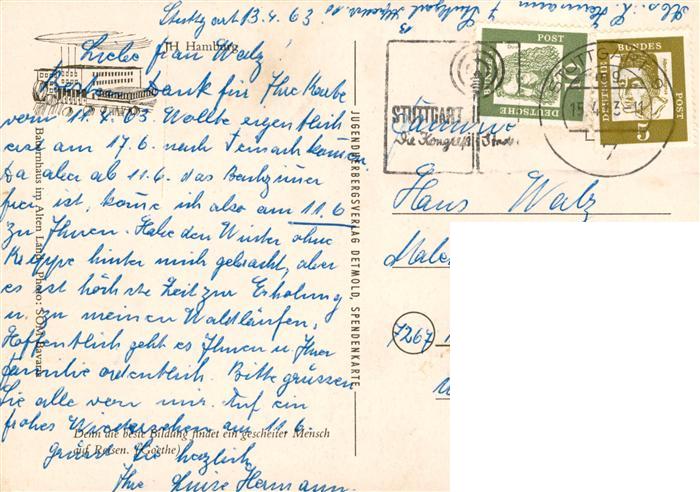 Stuttgart 13.4.63
JH Hamburg
Liebe Frau Walz!
dank für Ihre Karte
vom 11.4.63. Wollte eigentlich
erst am 17.6. nach Teinach kommen.
Da aber ab 11.6. das
frei ist, komme ich also am 11.6
zu Ihnen. Habe den Winter ohne
Grippe hinter mich gebracht, aber
es ist höchste Zeit zur Erholung
u. zu meinen Waldläufen.
Hoffentlich geht es Ihnen u. Ihrer
Familie ordentlich. Bitte grüssen
Sie alle von mir. Auf ein
frohes Wiedersehen am 11.6.
Denn die beste Bildung findet ein gescheiter Mensch
auf Reisen. (Goethe)
grüsst Sie herzlich
Ihre Luise Hermann
Bauernhaus im Alten Land, Photo: SOM Bavaria
JUGENDHERBERGSVERLAG DETMOLD, SPENDENKARTE
Abs. L. Hermann
Stuttgart
STUTTGART
Die Kongreß Stadt
POST
10
DEUTSCHE
BUNDES
POST
5
15.4.63-11
Familie
Hans Walz
Maler
7267